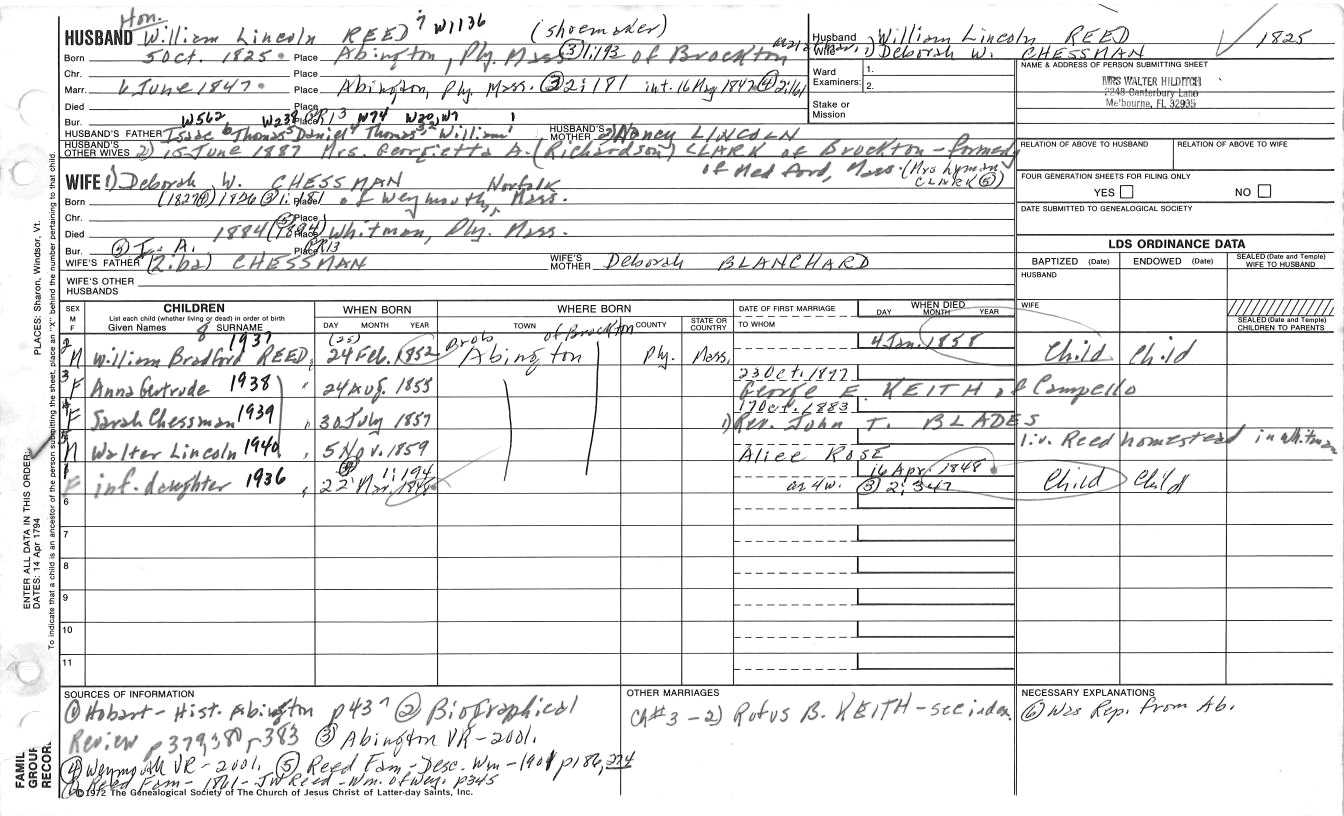 Hon.
HUSBAND William Lincoln REED 7 W1136 (shoemaker)
Husband William Lincoln REED 1825
Wife 1) Deborah W. CHESSMAN
Born 5 Oct. 1825 Place Abington, Ply. Mass (3) 1:193 of Brockton
Chr. Place
Marr. 6 June 1847 Place Abington, Ply. Mass. (3) 2:181 int. 16 May 1847 (4) 2:161
Died
Bur. Place
W562 W238 PR13 W74 W20, W7 1
HUSBAND'S FATHER Isaac 6 Thomas 5 Daniel 4 Thomas 3,2 William 1 HUSBAND'S MOTHER 2) Nancy LINCOLN
HUSBAND'S OTHER WIVES 2) 15 June 1887 Mrs. Georgietta A. (Richardson) CLARK of Brockton - formerly
of Medford, Mass. (Mrs Lyman CLARK (5))
WIFE 1) Deborah W. CHESSMAN Norfolk
Born (1827 1826 (3) 1:151 Place of Weymouth, Mass.
Chr. Place
Died 1884 (5) (1894) Place Whitman, Ply. Mass.
Bur. Place PR13
(5) A.
WIFE'S FATHER (Ziba) CHESSMAN WIFE'S MOTHER Deborah BLANCHARD
WIFE'S OTHER HUSBANDS
Ward Examiners: 1. 2.
Stake or Mission
NAME & ADDRESS OF PERSON SUBMITTING SHEET
MRS WALTER HILDITCH
2248 Canterbury Lane
Melbourne, FL 32935
RELATION OF ABOVE TO HUSBAND RELATION OF ABOVE TO WIFE
FOUR GENERATION SHEETS FOR FILING ONLY
YES NO
DATE SUBMITTED TO GENEALOGICAL SOCIETY
LDS ORDINANCE DATA
BAPTIZED (Date) ENDOWED (Date) SEALED (Date and Temple) WIFE TO HUSBAND
HUSBAND
WIFE
SEALED (Date and Temple) CHILDREN TO PARENTS
SEX M F CHILDREN WHEN BORN WHERE BORN DATE OF FIRST MARRIAGE WHEN DIED
List each child (whether living or dead) in order of birth
Given Names SURNAME DAY MONTH YEAR TOWN COUNTY STATE OR COUNTRY TO WHOM DAY MONTH YEAR
8 1937 (25) prob of Brockton 4 Jan. 1858
2 M William Bradford REED, 24 Feb. 1852 Abington Ply. Mass. Child Child
3 F Anna Gertrude 1938 24 Aug. 1855 23 Oct. 1877
George E. KEITH of Campello
4 F Sarah Chessman 1939 30 July 1857 17 Oct. 1883
1) Rev. John T. BLADES
5 M Walter Lincoln 1940 5 Nov. 1859 liv. Reed homestead in Whitman
Alice ROSE
1 F inf. daughter 1936 22 Mar. 1848 1:194 16 Apr. 1848 Child Child
as 4w. (3) 2:347
6
7
8
9
10
11
SOURCES OF INFORMATION
(1) Hobart - Hist. Abington p437 (2) Biographical
Review p379,380, p383 (3) Abington VR - 2001.
(4) Weymouth VR - 2001. (5) Reed Fam - Desc. Wm - 1901 p186, 274
Reed Fam - 1861 - JW Reed - Wm. of Wey. p345
OTHER MARRIAGES
Ch#3 - 2) Rufus B. KEITH - see index
NECESSARY EXPLANATIONS
(6) Was Rep. from Ab.
©1972 The Genealogical Society of The Church of Jesus Christ of Latter-day Saints, Inc.
FAMIL GROUP RECOR
ENTER ALL DATA IN THIS ORDER:
DATES: 14 Apr 1794
PLACES: Sharon, Windsor, Vt.
To indicate that a child is an ancestor of the person submitting the sheet, place an "X" behind the number pertaining to that child.